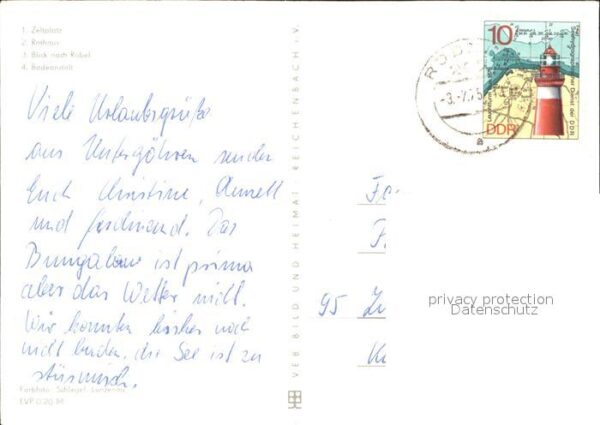 1. Zeltplatz
2. Rathaus
3. Blick nach Röbel
4. Badeanstalt
Viele Urlaubsgrüße
aus Untergöhren senden
Euch Christine, Annett
und Ferdinand. Das
Bungalow ist prima
aber das Wetter nicht.
Wir konnten bisher noch
nicht baden, die See ist zu
stürmisch.
Farbfoto: Schlegel,
EVP 0,20 M
VEB BILD UND HEIMAT REICHENBACH i. V.
10
DDR
Leuchtturm
der DDR
a
95
privacy protection
Datenschutz